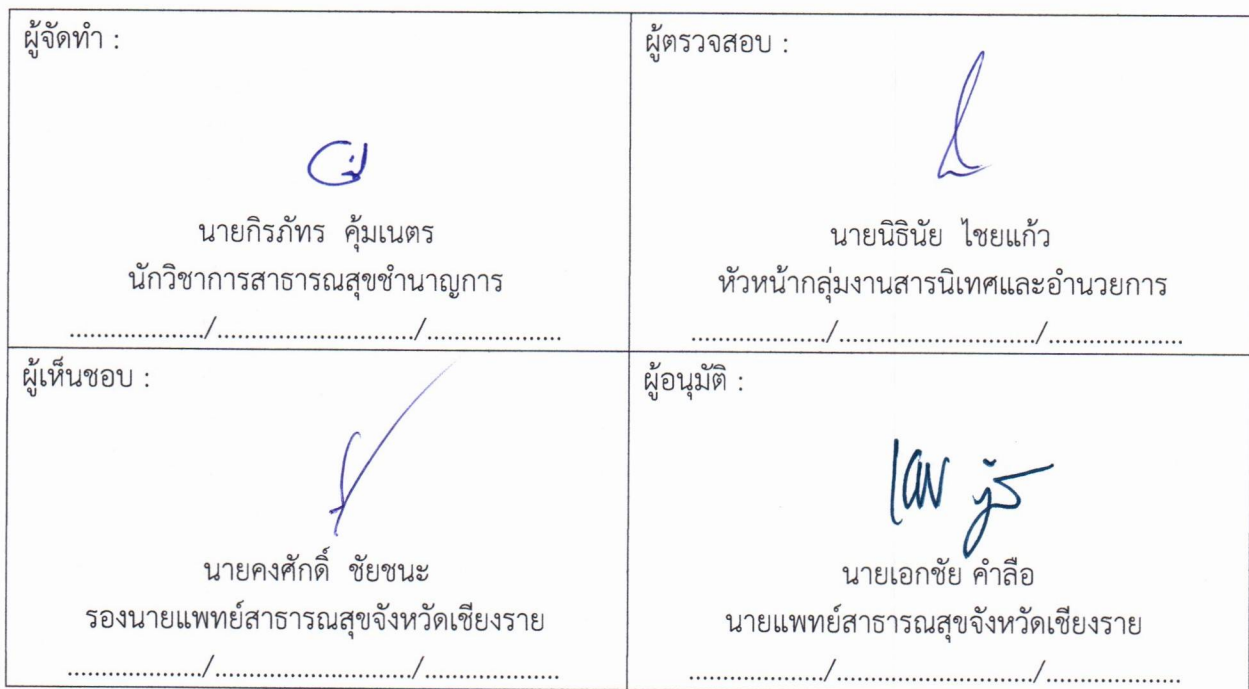 ผู้จัดทำ :
นายกิรภัทร คุ้มเนตร
นักวิชาการสาธารณสุขชำนาญการ
..................../............................../....................
ผู้ตรวจสอบ :
นายนิธินัย ไชยแก้ว
หัวหน้ากลุ่มงานสารนิเทศและอำนวยการ
..................../............................../....................
ผู้เห็นชอบ :
นายคงศักดิ์ ชัยชนะ
รองนายแพทย์สาธารณสุขจังหวัดเชียงราย
..................../............................../....................
ผู้อนุมัติ :
นายเอกชัย คำลือ
นายแพทย์สาธารณสุขจังหวัดเชียงราย
..................../............................../....................